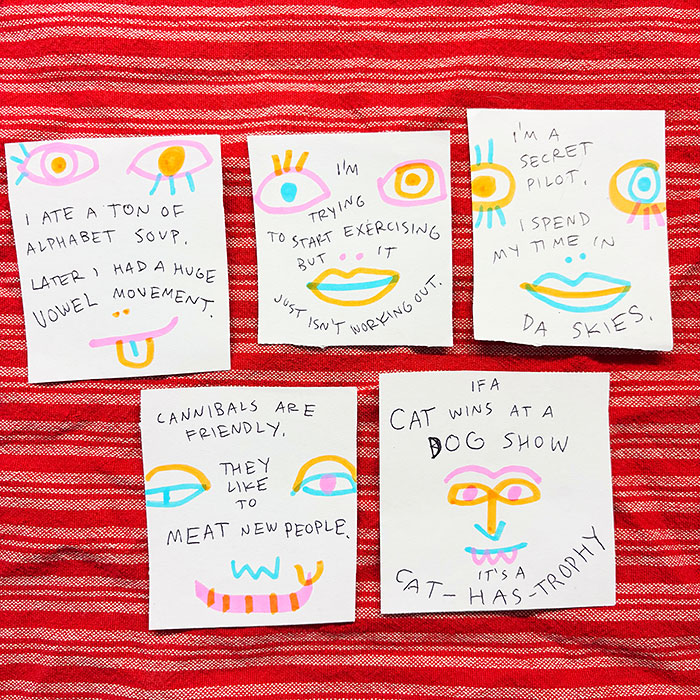 I ATE A TON OF
ALPHABET SOUP.
LATER I HAD A HUGE
VOWEL MOVEMENT.
I'M
TRYING
TO START EXERCISING
BUT IT
JUST ISN'T WORKING OUT.
I'M A
SECRET
PILOT.
I SPEND
MY TIME IN
DA SKIES.
CANNIBALS ARE
FRIENDLY.
THEY
LIKE
TO
MEAT NEW PEOPLE.
IF A
CAT WINS AT A
DOG SHOW
IT'S A
CAT-HAS-TROPHY